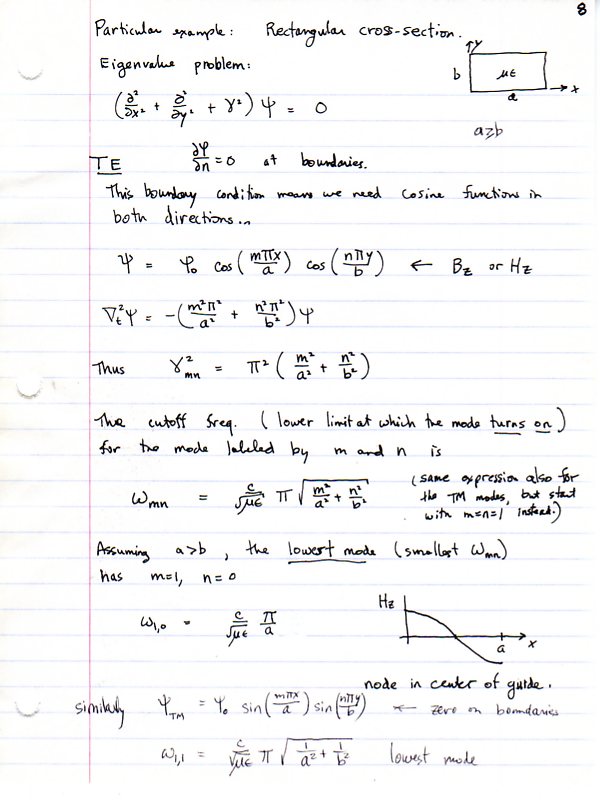 8
Particular example: Rectangular cross-section.
y
b
με
a
x
a≥b
Eigenvalue problem:
(∂²/∂x² + ∂²/∂y² + γ²) Ψ = 0
TE ∂Ψ/∂n = 0 at boundaries.
This boundary condition means we need cosine functions in
both directions...
Ψ = Ψ₀ cos(mπx/a) cos(nπy/b) ← Bz or Hz
∇t²Ψ = -(m²π²/a² + n²π²/b²)Ψ
Thus γ²mn = π² (m²/a² + n²/b²)
The cutoff freq. (lower limit at which the mode turns on)
for the mode labeled by m and n is
ωmn = c/√με π √(m²/a² + n²/b²)
(same expression also for
the TM modes, but start
with m=n=1 instead.)
Assuming a>b, the lowest mode (smallest ωmn)
has m=1, n=0
ω1,0 = c/√με π/a
Hz
a
x
node in center of guide.
similarly ΨTM = Ψ₀ sin(mπx/a) sin(nπy/b) ← zero on boundaries
ω1,1 = c/√με π √(1/a² + 1/b²) lowest mode